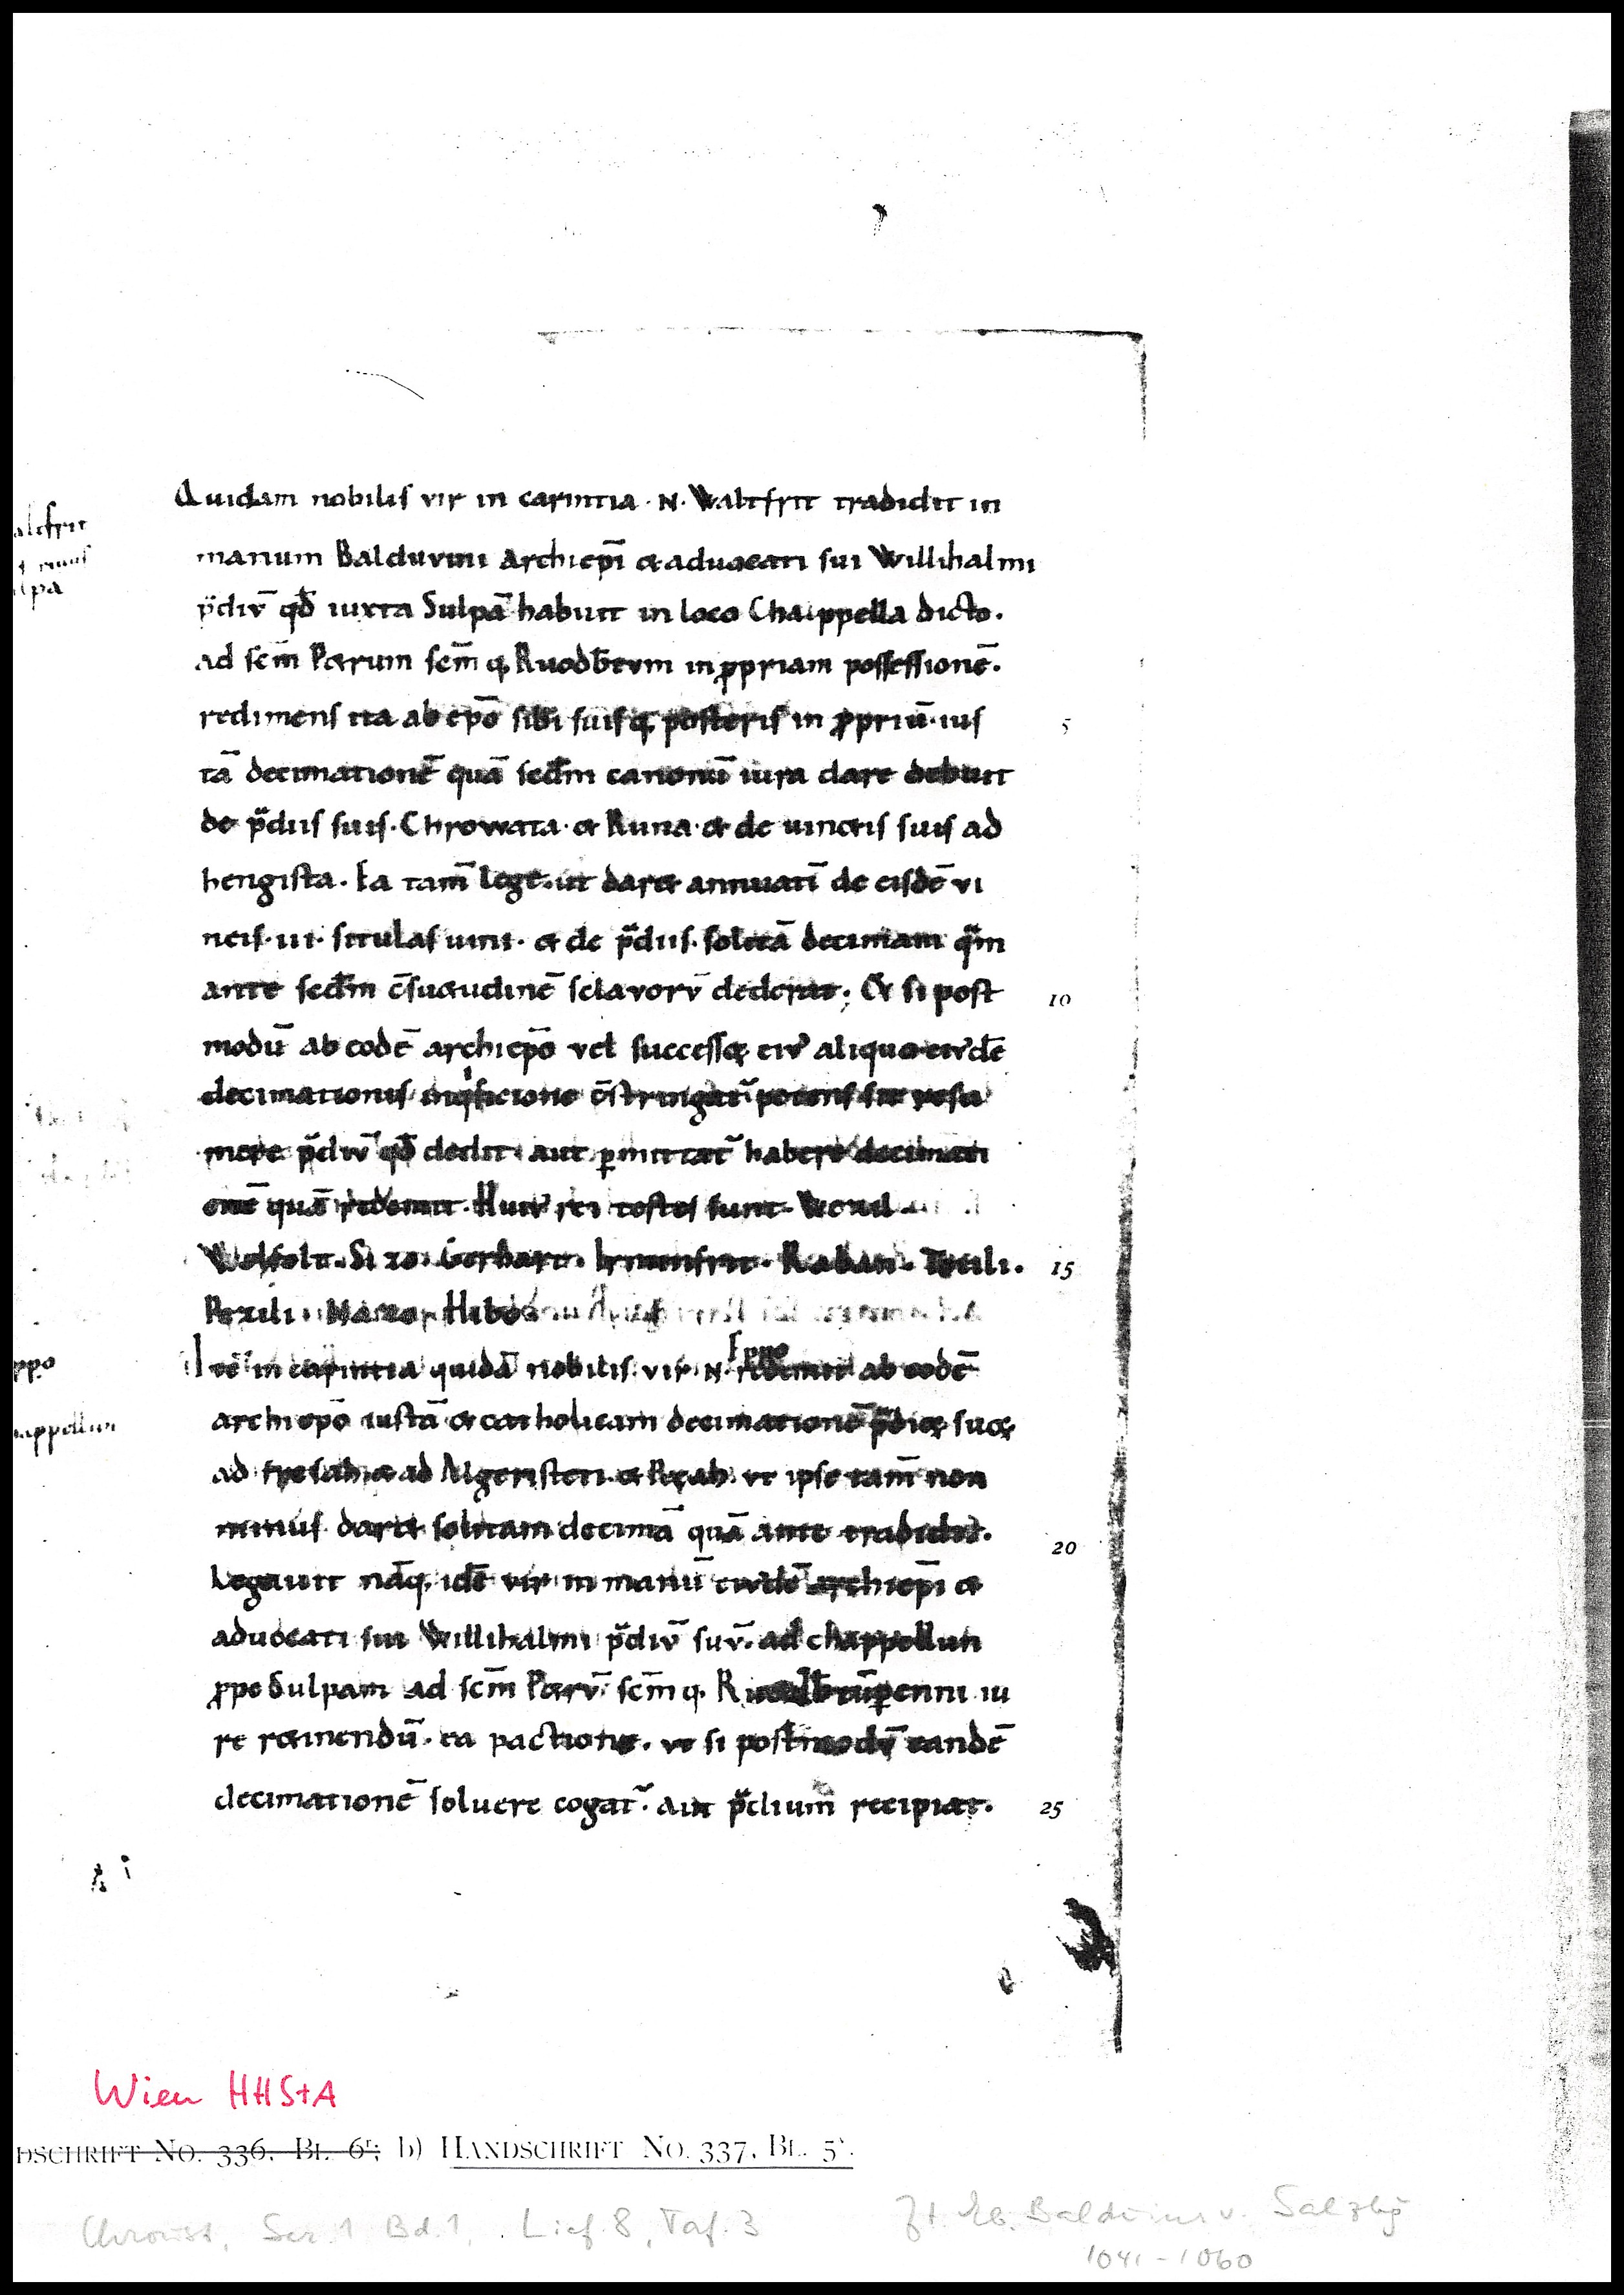 alifrit
ruus
lpa
Quidam nobilis vir in carintia · N · Waltfrit tradidit in
manum Balduvini Archiep̄i & aduocati sui Willihalmi
p̄div̄ qđ iuxta Sulpā habuit in loco Chappella dicto.
ad scm̄ Petrum scm̄ q; Ruodb̄tum in ꝓpriam possessionē.
redimens ita ab ep̄o sibi suisq; posteris in ꝓpriū ius
tā decimationē quā scdm̄ canonū iura dare debuit
de p̄diis suis · Chrowata · & Runa · & de uincis suis ad
hengista. Ea tam̄ lege ut daret annuatī de eisdē vi
neis · III · situlas uini · & de p̄diis · solitā decimam q̄m
ante scdm̄ c̄suetudinē sclavorv̄ dederat; Et si post
modū ab eodē archiep̄o vel successoꝝ eiꝰ aliquo eiꝰdē
decimationis inq'sicione c̄stringat̄ potens sit resu
mere p̄div̄ qđ dedit aut ꝑmittat̄ habere decimati
onē quā redemit. Huiꝰ rei testes sunt.
Wolfolt. Sizo. Gerhart. Irminfrit. Raban. Tetili.
Pezili. Mazo. Hibo
Itē in carintia quidā nobilis vir · N · Eppo redemit ab eodē
archiep̄o iustā & catholicam decimationē p̄dioꝝ suoꝝ
ad & ad Algeristeti & ut ipse tam̄ non
minus daret solitam decimā quā ante tradidit.
Legauit nāq; idē vir in manū eiꝰdē archiep̄i &
aduocati sui Willihalmi p̄div̄ suv̄ ad chappellun
ꝓpe Sulpam ad scm̄ Petrv̄ scm̄ q; Ruodb̄tū ꝑenni iu
re retinendū. ea pactione. ut si postmodv̄ eandē
decimationē soluere cogat̄. aut p̄dium recipiat.
5
10
15
20
25
ppo
appellun
Wien HHStA
DSCHRIFT NO. 336, BL. 6ʳ; b) HANDSCHRIFT NO. 337, BL. 5ᵛ.
Chroust, Ser. 1 Bd. 1, Lief. 8, Taf. 3
Zt. Eb. Balduins v. Salzbg
1041 - 1060